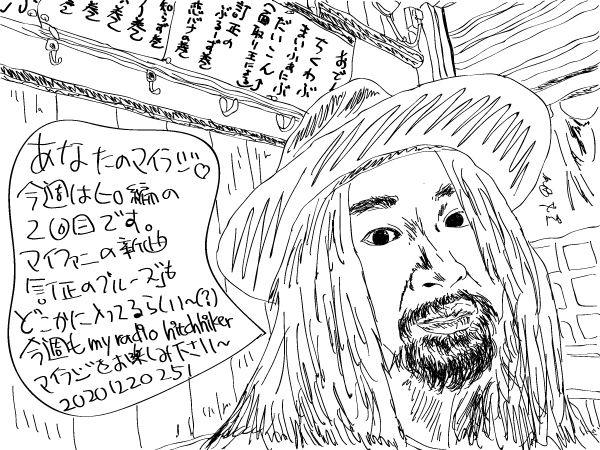 あなたのマイラジ♡
今週はヒロ編の
2回目です。
マイファニーの新曲
訂正のブルーズも
どこかに入ってるらしい〜(?)
今週も my radio hitchhiker
マイラジをお楽しみ下さい〜
20201220 251
おでん
ちくわぶ
まいふぁにぶ
だいこん
(面取り王に
訂正の
ぶるーず巻
恋バナの巻
知らず巻